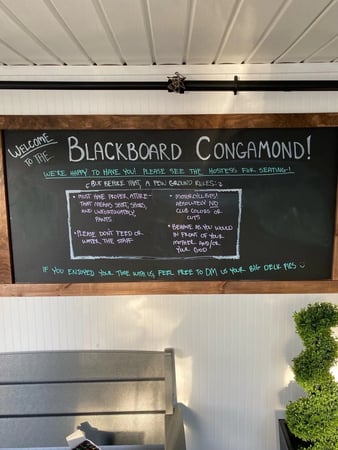 WELCOME
TO THE
BLACKBOARD CONGAMOND!
WE'RE HAPPY TO HAVE YOU! PLEASE SEE THE HOSTESS FOR SEATING!
(BUT BEFORE THAT, A FEW GROUND RULES:)
• MUST HAVE PROPER ATTIRE-
THAT MEANS SHIRT, SHOES,
AND UNFORTUNATELY,
PANTS
• PLEASE DON'T FEED OR
WATER THE STAFF
• MOTORCYCLISTS:
ABSOLUTELY NO
CLUB COLORS OR
CUTS
• BEHAVE AS YOU WOULD
IN FRONT OF YOUR
MOTHER AND/OR
YOUR GOD
IF YOU ENJOYED YOUR TIME WITH US, FEEL FREE TO DM US YOUR BIG DECK PICS